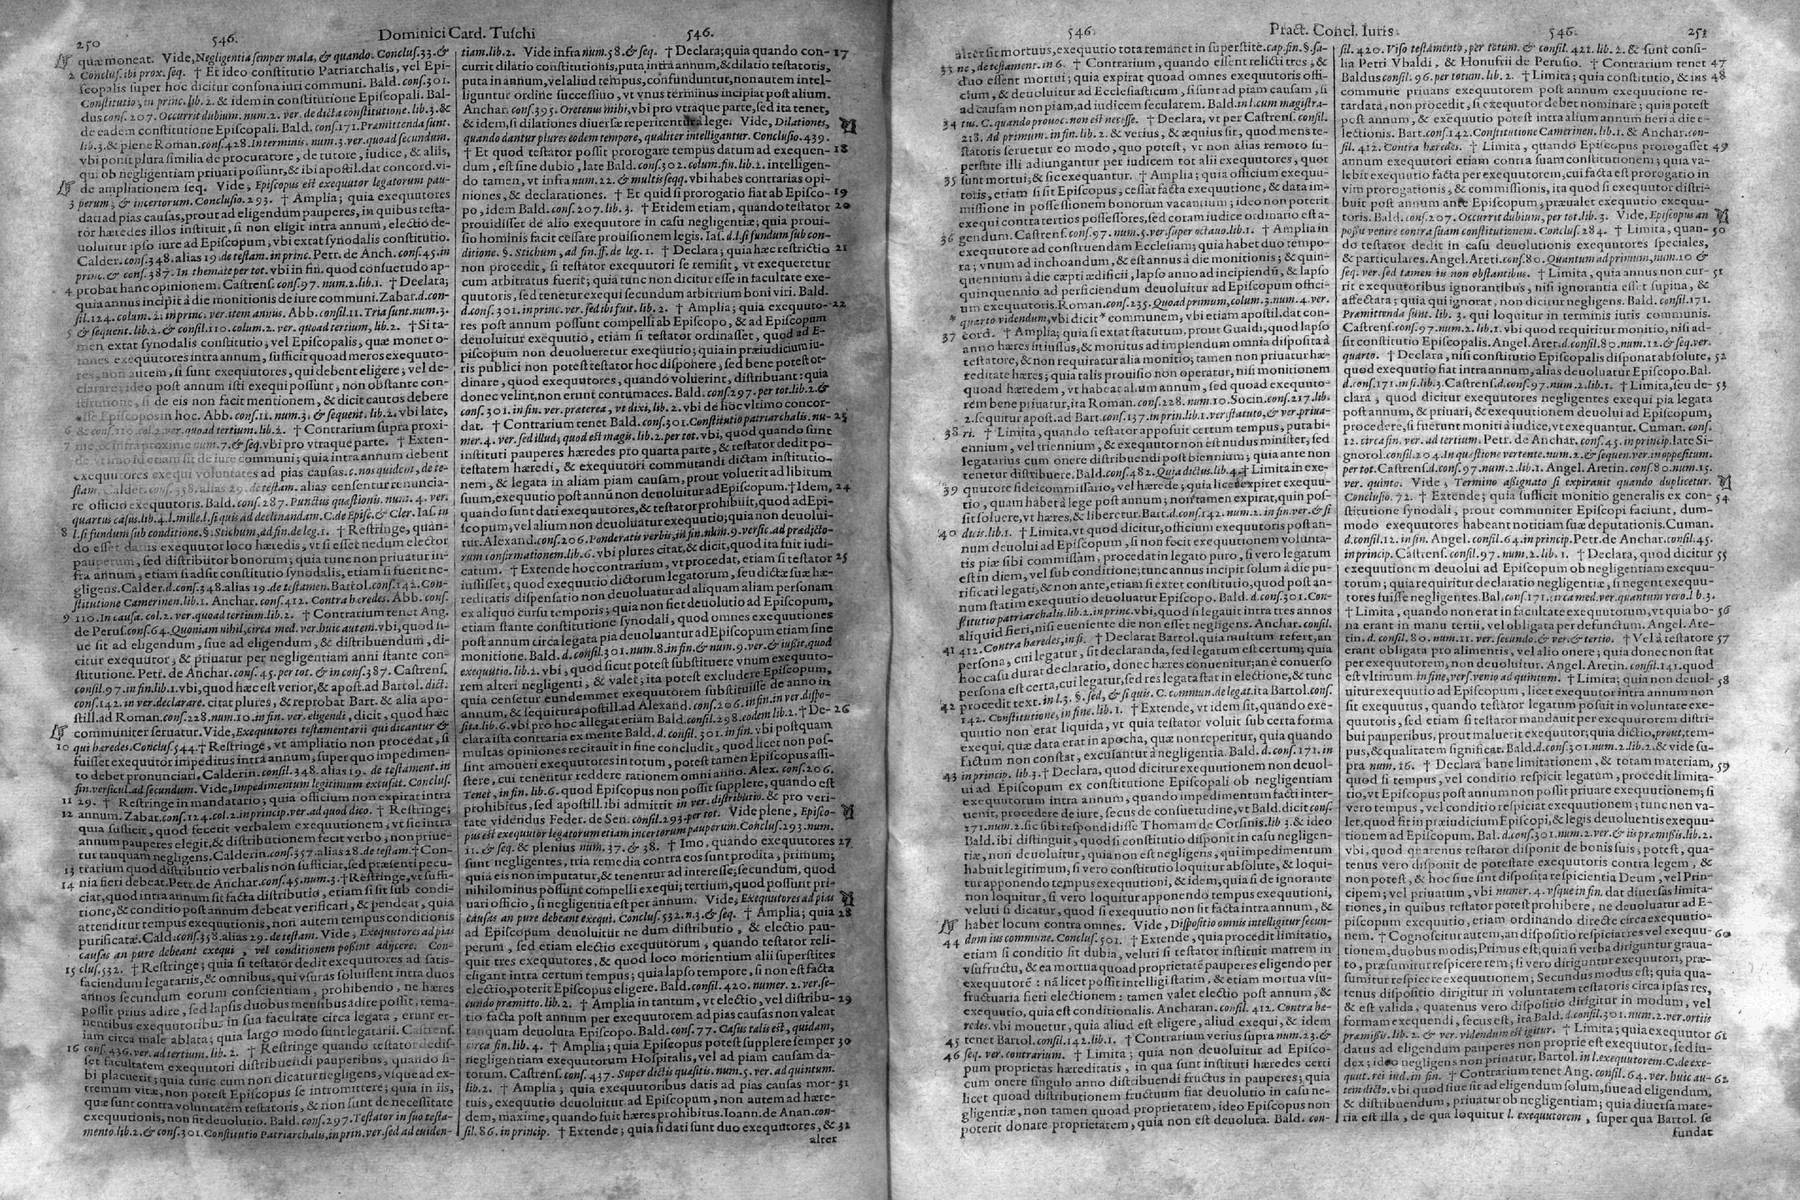 250 546. Dominici Card. Tuschi 546.
quæ moneat. Vide, Negligentia semper mala, & quando. Conclus. 33. &
2 Conclus. ibi prox. seq. † Et ideo constitutio Patriarchalis, vel Epi-
scopalis super hoc dicitur consona iuri communi. Bald. cons. 301.
Constitutio, in princ. lib. 2. & idem in constitutione Episcopali. Bal-
dus cons. 207. Occurrit dubium. num. 2. ver. de dicta constitutione. lib. 3. &
de eadem constitutione Episcopali. Bald. cons. 171. Pramittenda sunt.
lib. 3. & plene Roman. cons. 428. In terminis. num. 3. ver. quo ad secundum.
vbi ponit plura similia de procuratore, de tutore, iudice, & aliis,
qui ob negligentiam priuari possunt, & ibi apostil. dat concord. vi-
de ampliationem seq. Vide, Episcopus est exequutor legatorum pau-
3 perum, & incertorum. Conclusio 293. † Amplia; quia exequutores
dati ad pias causas, prout ad eligendum pauperes, in quibus testa-
tor hæredes illos instituit, si non eligit intra annum, electio de-
uoluitur ipso iure ad Episcopum, vbi extat synodalis constitutio.
Calder. cons. 348. alias 19. de testam. in princ. Petr. de Anch. cons. 45. in
princ. & cons. 387. In themate per tot. vbi in fin. quod consuetudo ap-
4 probat hanc opinionem. Castrens. cons. 97. num. 2. lib. 1. † Declara;
quia annus incipit à die monitionis de iure communi. Zabar. d. con-
sil. 124. colum. 2. in princ. ver. item annus. Abb. cons. 11. Tria sunt. num. 3.
5 & sequent. lib. 2. & cons. 110. colum. 2. ver. quo ad tertium, lib. 2. † Si ta-
men extat synodalis constitutio, vel Episcopalis, quæ monet o-
mnes exequutores intra annum, sufficit quo ad meros exequuto-
res, non autem, si sunt exequutores, qui debent eligere; vel de-
clarare; ideo post annum isti exequi possunt, non obstante con-
stitutione, si de eis non facit mentionem, & dicit cautos debere
esse Episcopos in hoc. Abb. cons. 11. num. 3. & sequent. lib. 2. vbi late,
6 & cons. 110. col. 2. ver. quo ad tertium. lib. 2. † Contrarium supra proxi-
7 me, & infra proxime num. 7. & seq. vbi pro vtraque parte. † Exten-
de, vt imo id etiam sit de iure communi; quia intra annum debent
exequutores exequi voluntates ad pias causas. c. nos quidem, de te-
stam. Calder. cons. 358. alias 29. de testam. alias censentur renuncia-
re officio exequutores. Bald. cons. 287. Punctus quæstionis. num. 4. ver.
quartus casus. lib. 4. l. mille. l. si quis ad declinandam. C. de Episc. & Cler. Ias. in
8 l. si fundum sub conditione. §. Stichum, ad fin. de leg. 1. † Restringe, quan-
do esset datus exequutor loco hæredis, vt si esset nedum elector
pauperum, sed distributor bonorum; quia tunc non priuatur in-
fra annum, etiam si adsit constitutio synodalis, etiam si fuerit ne-
gligens. Calder. d. cons. 348. alias 19. de testamen. Bartol. cons. 142. Con-
stitutione Camerinen. lib. 1. Anchar. cons. 412. Contra heredes. Abb. cons.
9 110. In causa. col. 2. ver. quo ad tertium. lib. 2. † Contrarium tenet Ang.
de Perus. cons. 64. Quoniam nihil, circa med. ver. huic autem. vbi, quod si-
ue sit ad eligendum, siue ad eligendum, & distribuendum, di-
citur exequutor, & priuatur per negligentiam anni stante con-
stitutione. Petr. de Anchar. cons. 45. per tot. & in cons. 387. Castrens.
cons. 97. in fin. lib. 1. vbi, quod hæc est verior, & apost. ad Bartol. dict.
cons. 142. in ver. declarare. citat plures, & reprobat Bart. & alia apo-
still. ad Roman. cons. 228. num. 10. in fin. ver. eligendi, dicit, quod hæc
communiter seruatur. Vide, Exequutores testamentarii qui dicantur &
10 qui heredes. Conclus. 544. † Restringe, vt ampliatio non procedat, si
fuisset exequutor impeditus intra annum, super quo impedimen-
to debet pronunciari. Calderin. consil. 348. alias 19. de testament. in
fin. versicul. ad secundum. Vide, Impedimentum legitimum excusat. Conclus.
11 29. † Restringe in mandatario; quia officium non expirat intra
12 annum. Zabar. cons. 124. col. 2. in princip. ver. ad quod dico. † Restringe;
quia sufficit, quod fecerit verbalem exequutionem, vt sic intra
annum pauperes elegit, & distributionem fecit verbo, non priue-
tur tanquam negligens. Calderin. cons. 357. alias 28. de testam. † Con-
13 trarium quod distributio verbalis non sufficiat, sed præsenti pecu-
14 nia fieri debeat. Petr. de Anchar. cons. 45. num. 3. † Restringe, vt suffi-
ciat, quod intra annum sit facta distributio, etiam si sit sub condi-
tione, & conditio post annum debeat verificari, & pendeat, quia
attenditur tempus distributionis, non autem tempus conditionis
purificatæ. Cald. cons. 358. alias 29. de testam. Vide, Exequutores ad pias
causas an pure debeant exequi, vel conditionem possint adjicere. Con-
15 clus. 532. † Restringe; quia si testator dedit exequutores ad satis-
faciendum legatariis, & omnibus, qui vsuras soluissent intra duos
annos secundum eorum conscientiam, prohibendo, ne hæres
possit prius adire, sed lapsis duobus mensibus adire possit, rema-
nentibus exequutoribus in sua facultate circa legata, erunt er-
iam circa male ablata; quia largo modo sunt legatarii. Castrens.
16 cons. 436. ver. ad tertium. lib. 2. † Restringe quando testator dedis-
set facultatem exequutori distribuendi pauperibus, quando si-
bi placuerit; quia tunc cum non dicatur negligens, vsque ad ex-
tremum vitæ, non potest Episcopus se intromittere; quia in iis,
quæ sunt contra voluntatem testatoris, & non sunt de necessitate
exequutionis, non fit deuolutio. Bald. cons. 297. Testator in suo testa-
mento. lib. 2. & cons. 301. Constitutio Patriarchalis, in prin. ver. sed ad euiden-
tiam. lib. 2. Vide infra num. 58. & seq. † Declara; quia quando con- 17
currit dilatio constitutionis, puta intra annum, & dilatio testatoris,
puta in annum, vel aliud tempus, confunduntur, non autem intel-
liguntur ordine successiuo, vt vnus terminus incipiat post alium.
Anchar. cons. 395. Oretenus mihi, vbi pro vtraque parte, sed ita tenet,
& idem, si dilationes diuersæ reperirentur à lege. Vide, Dilationes,
quando dantur plures eodem tempore, qualiter intelligantur. Conclusio 439.
† Et quod testator possit prorogare tempus datum ad exequen- 18
dum, est sine dubio, late Bald. cons. 302. colum. fin. lib. 2. intelligen-
do tamen, vt infra num. 22. & multis seqq. vbi habes contrarias opi-
niones, & declarationes. † Et quid si prorogatio fiat ab Episco- 19
po, idem Bald. cons. 207. lib. 3. † Et idem etiam, quando testator 20
prouidisset de alio exequutore in casu negligentiæ; quia proui-
sio hominis facit cessare prouisionem legis. Ias. d. l. si fundum sub con-
ditione. §. Stichum, ad fin. ff. de leg. 1. † Declara; quia hæc restrictio 21
non procedit, si testator exequutori se remisit, vt exequeretur
cum arbitratus fuerit; quia tunc non dicitur esse in facultate exe-
quutoris, sed tenetur exequi secundum arbitrium boni viri. Bald.
d. cons. 301. in princ. ver. sed ibi fuit. lib. 2. † Amplia; quia exequuto- 22
res post annum possunt compelli ab Episcopo, & ad Episcopum
deuoluitur exequutio, etiam si testator ordinasset, quod ad E-
piscopum non deuolueretur exequutio; quia in præiudicium iu-
ris publici non potest testator hoc disponere, sed bene potest or-
dinare, quod exequutores, quando voluerint, distribuant: quia
donec velint, non erunt contumaces. Bald. cons. 297. per tot. lib. 2. &
cons. 301. in fin. ver. præterea, vt dixi, lib. 2. vbi de hoc vltimo concor-
dat. † Contrarium tenet Bald. cons. 301. Constitutio patriarchalis. nu- 23
mer. 4. ver. sed illud; quod est magis. lib. 2. per tot. vbi, quod quando sunt
instituti pauperes hæredes pro quarta parte, & testator dedit po-
testatem hæredi, & exequutori commutandi dictam institutio-
nem, & legata in aliam piam causam, prout voluerit ad libitum
suum, exequutio post annũ non deuoluitur ad Episcopum. † Idem, 24
quando sunt dati exequutores, & testator prohibuit, quod ad Epi-
scopum, vel alium non deuoluatur exequutio; quia non deuolui-
tur. Alexand. cons. 206. Ponderatis verbis, in fin. num. 9. versic. ad prædicto-
rum confirmationem. lib. 6. vbi plures citat, & dicit, quod ita fuit iudi-
catum. † Extende hoc contrarium, vt procedat, etiam si testator 25
iussisset, quod exequutio dictorum legatorum, seu dictæ suæ hæ-
reditatis dispensatio non deuoluatur ad aliquam aliam personam
ex aliquo cursu temporis; quia non fiet deuolutio ad Episcopum,
etiam stante constitutione synodali, quod omnes exequutiones
post annum circa legata pia deuoluantur ad Episcopum etiam sine
monitione. Bald. d. cons. 301. num. 8. in fin. & num. 9. ver. & iussit, quod
exequutio. lib. 2. vbi, quod sicut potest substituere vnum exequuto-
rem alteri negligenti, & valet; ita potest excludere Episcopum,
quia censetur eundemmet exequutorem substituisse de anno in
annum, & sequitur apostill. ad Alexand. cons. 206. in fin. in ver. dispo-
sita. lib. 6. vbi pro hoc allegat etiam Bald. consil. 298. eodem lib. 2. † De- 26
clara ista contraria ex mente Bald. d. consil. 301. in fin. vbi postquam
multas opiniones recitauit in fine concludit, quod licet non pos-
sint amoueri exequutores in totum, potest tamen Episcopus assi-
stere, cui tenentur reddere rationem omni anno. Alex. cons. 206.
Tenet, in fin. lib. 6. quod Episcopus non possit supplere, quando est
prohibitus, sed apostill. ibi admittit in ver. distributio. & pro veri-
tate videndus Feder. de Sen. consil. 293. per tot. Vide plene, Episco-
pus est exequutor legatorum etiam incertorum pauperum. Conclus. 293. num.
11. & plenius num. 37. & 38. † Imo, quando exequutores 27
sunt negligentes, tria remedia contra eos sunt prodita, primum;
quia eis non imputatur, & tenentur ad interesse; secundum, quod
nihilominus possunt compelli exequi; tertium, quod possunt pri-
uari officio, si negligentia est per annum. Vide, Exequutores ad pias
causas an pure debeant exequi. Conclus. 532. n. 3. & seq. † Amplia; quia 28
ad Episcopum deuoluitur ne dum distributio, & electio pau-
perum, sed etiam electio exequutorum, quando testator reli-
quit tres exequutores, & quod loco morientium alii superstites
eligant intra certum tempus; quia lapso tempore, si non est facta
electio, poterit Episcopus eligere. Bald. cons. 420. numer. 2. ver. se-
cundo pramitto. lib. 2. † Amplia in tantum, vt electio, vel distribu- 29
tio facta post annum per exequutorem ad pias causas non valeat
tanquam deuoluta Episcopo. Bald. cons. 77. Casus talis est, quidam,
circa fin. lib. 4. † Amplia; quia Episcopus potest supplere semper 30
negligentiam exequutorum Hospitalis, vel ad piam causam da-
torum. Castrens. cons. 437. Super dictis quæsitis. num. 5. ver. ad quintum.
lib. 2. † Amplia; quia exequutoribus datis ad pias causas mor- 31
tuis, exequutio deuoluitur ad Episcopum, non autem ad hære-
dem, maxime, quando fuit hæres prohibitus. Ioann. de Anan. con-
sil. 86. in princip. † Extende; quia si dati sunt duo exequutores, & 32
alter
546. Pract. Concl. Iuris. 546. 251
alter sit mortuus, exequutio tota remanet in superstite. cap. fin. §. sa-
33 ne, de testament. in 6. † Contrarium, quando essent relicti tres, &
duo essent mortui; quia expirat quo ad omnes exequutoris offi-
cium, & deuoluitur ad Ecclesiasticum, si sunt ad piam causam, si
ad causam non piam, ad iudicem secularem. Bald. in l. cum magistra-
34 tus. C. quando prouoc. non est necesse. † Declara, vt per Castrens. consil.
218. Ad primum. in fin. lib. 2. & verius, & æquius sit, quod mens te-
statoris seruetur eo modo, quo potest, vt non alias remoto su-
perstite illi adiungantur per iudicem tot alii exequutores, quot
35 sunt mortui; & sic exequantur. † Amplia; quia officium exequu-
toris, etiam si sit Episcopus, cessat facta exequutione, & data im-
missione in possessionem bonorum vacantium; ideo non poterit
exequi contra tertios possessores, sed coram iudice ordinario est a-
36 gendum. Castrens. cons. 97. num. 5. ver. super octauo. lib. 1. † Amplia in
exequutore ad construendam Ecclesiam; quia habet duo tempo-
ra; vnum ad inchoandum, & est annus à die monitionis; & quin-
quennium à die cæpti ædificii, lapso anno ad incipiendũ, & lapso
quinquennio ad perficiendum deuoluitur ad Episcopum offici-
um exequutoris. Roman. cons. 235. Quo ad primum, colum. 3. num. 4. ver.
* quarto videndum, vbi dicit * communem, vbi etiam apostil. dat con-
37 cord. † Amplia; quia si extat statutum, prout Gualdi, quod lapso
anno hæres iniussus, & monitus ad implendum omnia disposita à
testatore, & non requiratur alia monitio; tamen non priuatur hæ-
reditate hæres; quia talis prouisio non operatur, nisi monitionem
quo ad hæredem, vt habeat alium annum, sed quo ad exequuto-
rem bene priuatur, ita Roman. cons. 228. num. 10. Socin. cons. 217. lib.
2. sequitur apost. ad Bart. cons. 137. in prin. lib. 1. ver. statuto, & ver. priua-
38 ri. † Limita, quando testator apposuit certum tempus, puta bi-
ennium, vel triennium, & exequutor non est nudus minister, sed
legatarius cum onere distribuendi post biennium; quia ante non
tenetur distribuere. Bald. cons. 482. Quia dictus. lib. 4. † Limita in exe-
39 quutore fideicommissario, vel hærede; quia licet expiret exequu-
tio, quam habet à lege post annum; non tamen expirat, quin pos-
sit soluere, vt hæres, & liberetur. Bart. d. cons. 142. num. 2. in fin. ver. & si
40 duis. lib. 1. † Limita, vt quod dicitur, officium exequutoris post an-
num deuolui ad Episcopum, si non fecit exequutionem volunta-
tis piæ sibi commissam, procedat in legato puro, si vero legatum
est in diem, vel sub conditione; tunc annus incipit solum à die pu-
rificati legati, & non ante, etiam si extet constitutio, quod post an-
num statim exequutio deuoluatur Episcopo. Bald. d. cons. 301. Con-
stitutio patriarchalis. lib. 2. in princ. vbi, quod si legauit intra tres annos
aliquid fieri, nisi eueniente die non esset negligens. Anchar. consil.
41 412. Contra heredes, in fi. † Declarat Bartol. quia multum refert, an
persona, cui legatur, sit declaranda, sed legatum est certum; quia
hoc casu durat declaratio, donec hæres conuenitur; an è conuerso
persona est certa, cui legatur, sed res legata stat in electione, & tunc
procedit text. in l. 3. §. sed, & si quis. C. commun. de legat. ita Bartol. cons.
42 142. Constitutione, in fine. lib. 1. † Extende, vt idem sit, quando exe-
quutio non erat liquida, vt quia testator voluit sub certa forma
exequi, quæ data erat in apocha, quæ non reperitur, quia quando
factum non constat, excusantur à negligentia. Bald. d. cons. 171. in
43 in princip. lib. 3. † Declara, quod dicitur exequutionem non deuol-
ui ad Episcopum ex constitutione Episcopali ob negligentiam
exequutorum intra annum, quando impedimentum facti inter-
uenit, procedere de iure, secus de consuetudine, vt Bald. dicit cons.
171. num. 2. sic sibi respondidisse Thomam de Corsinis. lib. 3. & ideo
Bald. ibi distinguit, quod si constitutio disponit in casu negligen-
tiæ, non deuoluitur, quia non est negligens, qui impedimentum
habuit legitimum, si vero constitutio loquitur absolute, & loqui-
tur apponendo tempus exequutioni, & idem, quia si de ignorante
non loquitur, si vero loquitur apponendo tempus exequutioni,
veluti si dicatur, quod si exequutio non sit facta intra annum, &
haber locum contra omnes. Vide, Dispositio omnis intelligitur secun-
44 dum ius commune. Conclus. 501. † Extende, quia procedit limitatio,
etiam si conditio sit dubia, veluti si testator instituit matrem in
vsufructu, & ea mortua quo ad proprietatẽ pauperes eligendo per
exequutorẽ: nã licet possit intelligi statim, & etiam mortua vsu-
fructuaria fieri electionem: tamen valet electio post annum, &
exequutio, quia vitiatur conditionalis. Ancharan. cons. 412. Contra hæ-
redes. vbi mouetur, quia aliud est eligere, aliud exequi, & idem
45 tenet Bartol. cons. 142. lib. 1. † Contrarium verius supra num. 23. &
46 seq. ver. contrarium. † Limita; quia non deuoluitur ad Episco-
pum proprietas hæreditatis, in qua sunt instituti hæredes certi
cum onere singulo anno distribuendi fructus in pauperes; quia
licet quo ad distributionem fructuum fiat deuolutio in casu ne-
gligentiæ, non tamen quo ad proprietatem, ideo Episcopus non
poterit donare proprietatem, quia non est deuoluta. Bald. con-
sil. 420. Viso testamento, per totum. & consil. 421. lib. 2. & sunt consi-
lia Petri Vbaldi, & Honufrii de Perusio. † Contrarium tenet 47
Baldus consil. 96. per totum. lib. 2. † Limita; quia constitutio, & ius 48
commune priuans exequutorem post annum exequutione re-
tardata, non procedit, si exequutor debet nominare; quia potest
post annum, & exequutio potest intra alium annum fieri à die e-
lectionis. Bart. cons. 142. Constitutione Camerinen. lib. 1. & Anchar. con-
sil. 412. Contra hæredes. † Limita, quando Episcopus prorogasset 49
annum exequutori etiam contra suam constitutionem; quia va-
lebit exequutio facta per exequutorem, cui facta est prorogatio in
vim prorogationis, & commissionis, ita quod si exequutor distri-
buit post annum ante Episcopum, præualet exequutio exequu-
toris. Bald. cons. 207. Occurrit dubium, per tot. lib. 3. Vide, Episcopus an
possit venire contra suam constitutionem. Conclus. 284. † Limita, quan- 50
do testator dedit in casu deuolutionis exequutores speciales,
& particulares. Angel. Areti. cons. 80. Quantum ad primum, num. 10. &
seq. ver. sed tamen in non obstantibus. † Limita, quia annus non cur- 51
rit exequutoribus ignorantibus, nisi ignorantia esset supina, &
affectara; quia qui ignorat, non dicitur negligens. Bald. cons. 171.
Pramittenda sunt. lib. 3. qui loquitur in terminis iuris communis.
Castrens. cons. 97. num. 2. lib. 1. vbi quod requiritur monitio, nisi ad-
sit constitutio Episcopalis. Angel. Aret. d. cons. 80. num. 12. & seq. ver.
quarto. † Declara, nisi constitutio Episcopalis disponat absolute, 52
quod exequutio fiat intra annum, alias deuoluatur Episcopo. Bal.
d. cons. 171. in fi. lib. 3. Castrens. d. cons. 97. num. 2. lib. 1. † Limita, seu de- 53
clara, quod dicitur exequutores negligentes exequi pia legata
post annum, & priuari, & exequutionem deuolui ad Episcopum,
procedere, si fuerunt moniti à iudice, vt exequantur. Cuman. cons.
12. circa fin. ver. ad tertium. Petr. de Anchar. cons. 45. in princip. late Si-
gnorol. cons. 204. In quæstione vertente. num. 2. & sequen. ver. in oppositum.
per tot. Castrens. d. cons. 97. num. 2. lib. 1. Angel. Aretin. cons. 80. num. 15.
ver. quinto. Vide, Termino assignato si expirauit quando duplicetur.
Conclusio. 72. † Extende; quia sufficit monitio generalis ex con- 54
stitutione synodali, prout communiter Episcopi faciunt, dum-
modo exequutores habeant notitiam suæ deputationis. Cuman.
d. consil. 12. in fin. Angel. consil. 64. in princip. Petr. de Anchar. consil. 45.
in princip. Castrens. consil. 97. num. 2. lib. 1. † Declara, quod dicitur 55
exequutionem deuolui ad Episcopum ob negligentiam exequu-
torum; quia requiritur declaratio negligentiæ, si negent exequu-
tores fuisse negligentes. Bal. cons. 171. circa med. ver. quantum vero. lib. 3.
† Limita, quando non erat in facultate exequutorum, vt quia bo- 56
na erant in manu tertii, vel obligata per defunctum. Angel. Are-
tin. d. consil. 80. num. 11. ver. secundo. & ver. & tertio. † Vel à testatore 57
erant obligata pro alimentis, vel alio onere; quia donec non stat
per exequutorem, non deuoluitur. Angel. Aretin. consil. 141. quod
est vltimum in fine, vers. venio ad quintum. † Limita; quia non deuol- 58
uitur exequutio ad Episcopum, licet exequutor intra annum non
sit exequutus, quando testator legatum posuit in voluntate exe-
quutoris, sed etiam si testator mandauit per exequutorem distri-
bui pauperibus, prout maluerit exequutor; quia dictio, prout, tem-
pus, & qualitatem significat. Bald. d. cons. 301. num. 2. lib. 2. & vide su-
pra num. 16. † Declara hanc limitationem, & totam materiam, 59
quod si tempus, vel conditio respicit legatum, procedit limita-
tio, vt Episcopus post annum non possit priuare exequutionem; si
vero tempus, vel conditio respiciat exequutionem; tunc non va-
let, quod fit in præiudicium Episcopi, & legis deuoluentis exequu-
tionem ad Episcopum. Bal. d. cons. 301. num. 2. ver. & iis præmissis. lib. 2.
vbi, quod quatenus testator disponit de bonis suis, potest, qua-
tenus vero disponit de potestate exequutoris contra legem, &
non potest, & hoc siue sint disposita respicientia Deum, vel Prin-
cipem; vel priuatum, vbi numer. 4. vsque in fin. dat diuersas limita-
tiones, in quibus testator potest prohibere, ne deuoluatur ad E-
piscopum exequutio, etiam ordinando directe circa exequutio-
nem. † Cognoscitur autem, an dispositio respiciat res vel exequu- 60
tionem, duobus modis, Primus est, quia si verba diriguntur grauat-
to, præsumitur respicere rem; si vero diriguntur exequutori, præ-
sumitur respicere exequutionem; Secundus modus est; quia qua-
tenus dispositio dirigitur in voluntatem testatoris circa ipsas res,
& est valida, quatenus vero dispositio dirigitur in modum, vel
formam exequendi, secus est, ita Bald. d. consil. 301. num. 2. ver. ortis
præmissis. lib. 2. & ver. videndum est igitur. † Limita; quia exequutor 61
datus ad eligendum pauperes non proprie est exequutor, sed iu-
dex; ideo negligens non priuatur. Bartol. in l. exequutorem. C. de exe-
quut. rei iud. in fin. † Contrarium tenet Ang. consil. 64. ver. huic au- 62
tem dicto. vbi, quod siue sit ad eligendum solum, siue ad eligendum,
& distribuendum, priuatur ob negligentiam; quia diuersa mate-
ria est illa, de qua loquitur l. exequutorem, super qua Bartol. se
fundat